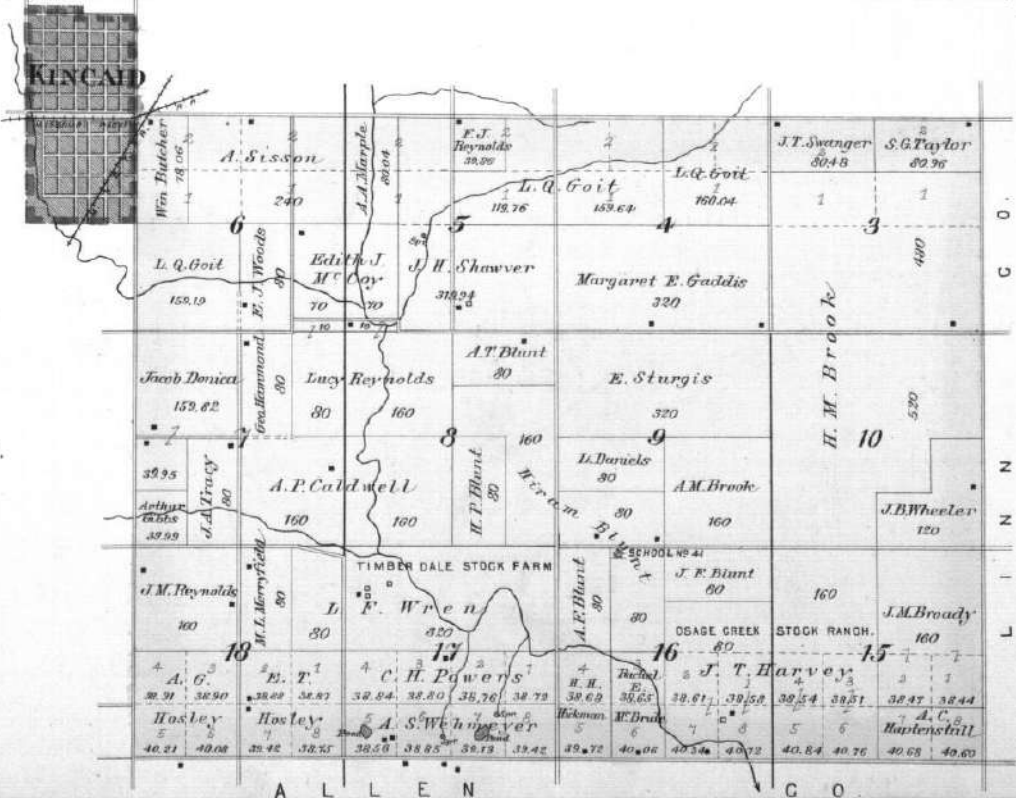 KINCAID
Wm Butcher
78.06
A. Sisson
240
A. A. Marple
80.04
F. J.
Reynolds
39.86
L. Q. Goit
119.76
159.64
L. Q. Goit
160.04
J. T. Swanger
80.48
S. G. Taylor
80.96
6
5
4
3
L. Q. Goit
159.19
E. J. Woods
80
Edith J.
McCoy
70
70
10
10
J. H. Shawver
319.94
Spr.
Margaret E. Gaddis
320
480
H. M. Brook
520
Jacob Donica
159.82
Geo. Hammond
80
Lucy Reynolds
80
160
A. T. Blunt
80
E. Sturgis
320
7
8
9
10
39.95
Arthur
Gibbs
39.99
J. A. Tracy
80
A. P. Caldwell
160
160
H. P. Blunt
80
160
Hiram Blunt
L. Daniels
80
80
A. M. Brook
160
J. B. Wheeler
120
J. M. Reynolds
160
M. L. Merryfield
80
TIMBER DALE STOCK FARM
L. F. Wren
80
320
A. F. Blunt
80
SCHOOL No 41
80
J. F. Blunt
80
160
J. M. Broady
160
OSAGE CREEK STOCK RANCH.
80
18
17
16
15
4 3 2 1 4 3 2 1 4
A. G.
38.91 38.90
E. T.
38.88 38.87
C. H. Powers
38.84 38.80 38.76 38.72
H. H.
38.69
Rachel
E.
38.65
J. T. Harvey
38.61 38.58 38.54 38.51
2 1
38.47 38.44
Hosley
5 6
40.21 40.08
Hosley
7 8
39.42 38.75
A. S. Wehmeyer
5 6 7 8
Pond
Spr.
Spr.
Pond
38.56 38.85 39.13 39.42
Hickman
5
39.72
McBride
6
40.06
7 8
40.34 40.72
5 6
40.84 40.76
A. C.
7 8
Haptenstall
40.68 40.60
A L L E N C O.
L I N N C O.